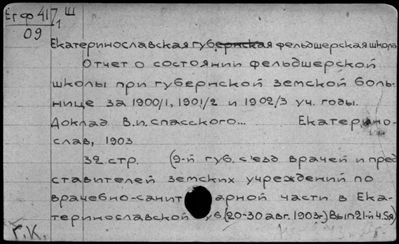 Егф 417 Ш
1
09
Екатеринославская губернская фельдшерская школа
Отчет о состоянии фельдшерской
школы при губернской земской боль-
нице за 1900/1, 1901/2 и 1902/3 уч. годы.
Доклад В.И. Спасского... Екатерино-
слав, 1903
32 стр. (9-й губ. съезд врачей и пред
ставителей земских учреждений по
врачебно-санит арной части в Ека-
теринославской губ (20-30 авг. 1903г.) Вып 2
Г.К.